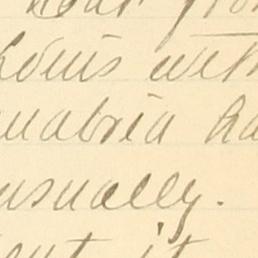 hear from
Louis with
nabria ha
usually.
ut it